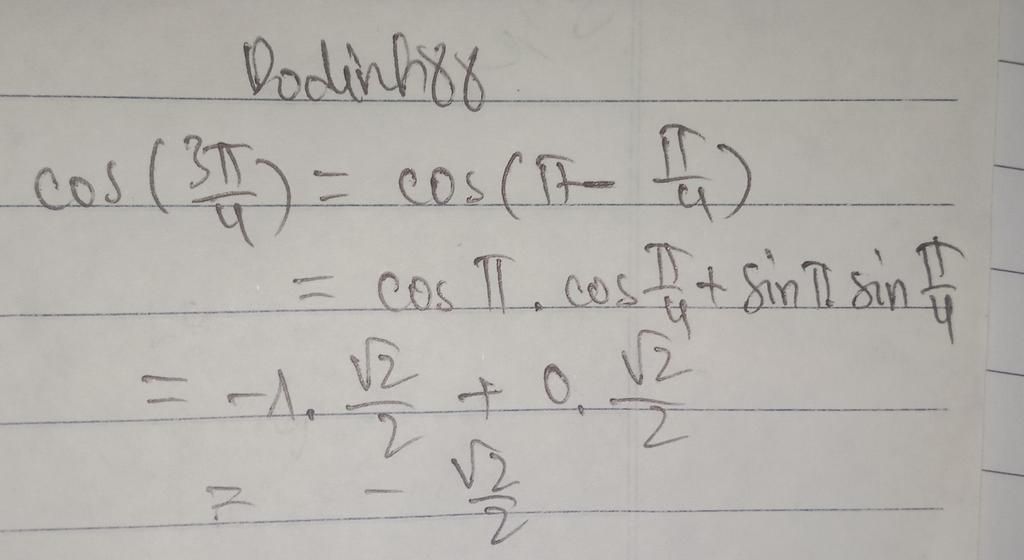 Dodinh88
cos(3π/4) = cos(π - π/4)
= cos π . cos π/4 + sin π sin π/4
= -1 . √2/2 + 0 . √2/2
= - √2/2